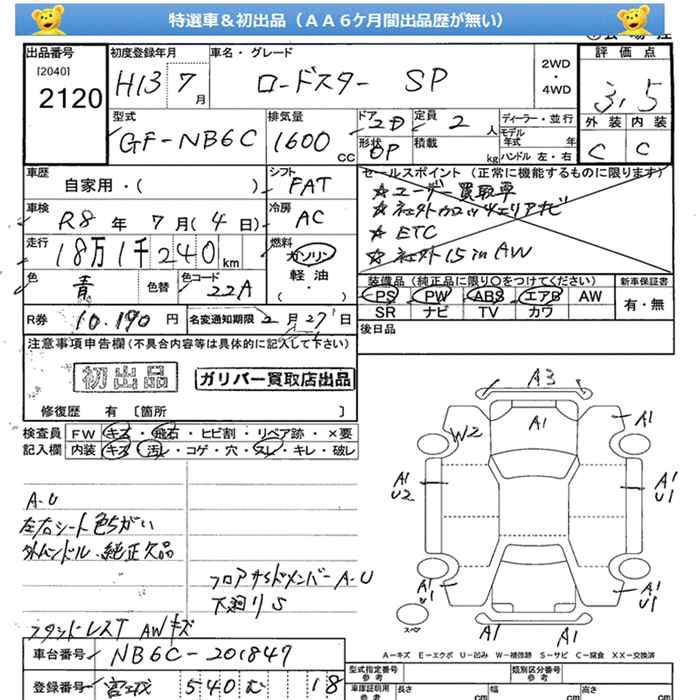 特選車&初出品(AA6ケ月間出品歴が無い)
出品番号 初度登録年月 車名・グレード 評価点
[2040] 2120 H13 7月 ロードスター SP 2WD・4WD 3.5
外装 内装
C C
型式 排気量 ドア 定員 ディーラー・並行
GF-NB6C 1600cc 2D 2人 モデル年式 年
形状 積載 kg ハンドル 左・右
OP
車歴 シフト セールスポイント(正常に機能するものに限ります)
自家用・( ) FAT
☆ユーザー買取車
車検 冷房
R8年 7月(4日) AC
☆ETC
☆社外15inAW
走行 燃料
18万1千240km ガソリン 軽油 ( ・ )
色 色替 色コード
青 22A
装備品(純正品に限り〇をつけてください) 新車保証書
PS PW ABS エアB AW 有・無
SR ナビ TV カワ
R券 10,190円 名変通知期限 2月27日 後日品
注意事項申告欄(不具合内容等は具体的に記入して下さい)
初出品 ガリバー買取店出品
修復歴 有 [箇所 ]
検査員記入欄 FW キズ・飛石・ヒビ割・リペア跡・×要
内装 キズ・汚レ・コゲ・穴・スレ・キレ・破レ
A3
A1 A1
W2
A1 U2 A1 U1
A-U
左右シート色ちがい
外ハンドル、純正欠品
フロアサイドメンバーA-U
下廻りS
A1 A1 U1
スペア
A1 A1
AWキズ
A-キズ E-エクボ U-凹み W-補修跡 S-サビ C-腐食 XX-交換済
車台番号 NB6C-201847
登録番号 宮城 540 む 18
型式指定番号 類別区分番号
参考 参考
車庫証明用 参考 長さ cm 幅 cm 高さ cm